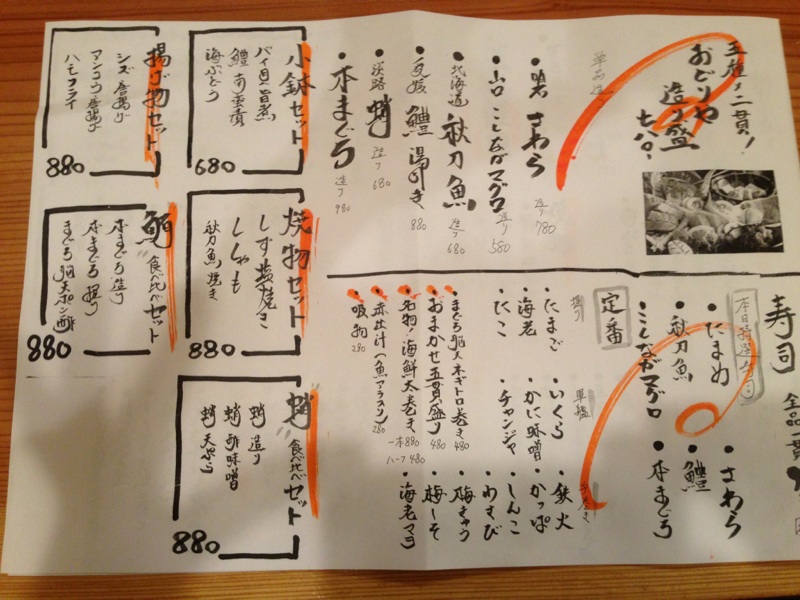 五種盛二貫!
おどりや
造り盛
七八〇.
単品造り
・明石 さわら 造り 780
・山口 こしながマグロ 造り 580
・北海道 秋刀魚 造り 680
・愛媛 鱧 湯引き 880
・淡路 蛸 造り 680
・本まぐろ 造り 980
寿司
全品一貫
本日特選寿司
・たまめ
・秋刀魚
・こしながマグロ
・さわら
・鱧
・本まぐろ
定番
握り
・たまご
・海老
・たこ
軍艦
・いくら
・かに味噌
・チャンジャ
・鉄火
・かっぱ
・しんこ
・わさび
・梅きゅう
・梅しそ
・海老マヨ
・まぐろ脳天ネギトロ巻き 480
・おまかせ五貫盛り 480
・名物・海鮮太巻き 一本 880
ハーフ 480
・赤出汁(魚アラ入り) 280
・吸物 280
小鉢セット
バイ貝旨煮
鱧 南蛮漬
海ぶどう
680
焼物セット
しず塩焼き
ししゃも
秋刀魚焼き
880
"蛸"食べ比べセット
蛸 造り
蛸 酢味噌
蛸 天ぷら
880
揚げ物セット
シズ唐揚げ
アンコウ唐揚げ
ハモフライ
880
"鮪"食べ比べセット
本まぐろ造り
本まぐろ握り
まぐろ脳天ポン酢
880